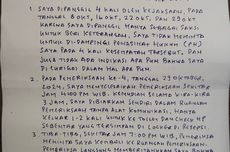 1. SAYA DIPANGGIL 4 KALI OLEH KEJAKSAAN, PADA
TANGGAL 8 OKT, 16 OKT, 22 OKT, DAN 29 OKT
KARENA SAYA DIPANGGIL HANYA SEBAGAI SAKSI
UNTUK BERI KETERANGAN, SAYA TIDAK MEMINTA
UNTUK DIDAMPINGI PENASIHAT HUKUM (PH)
SAYA PADA 4 KALI KESEMPATAN TERSEBUT. DAN
JUGA TIDAK ADA INDIKASI APA PUN BAHWA SAYA
DICURIGAI DALAM HAL APA PUN.
2. PADA PEMERIKSAAN KE-4, TANGGAL 29 OKTOBER,
2024, SAYA MENYELESAIKAN PEMERIKSAAN SEKITAR
JAM 4:00 PM WIB. KEMUDIAN SELAMA KIRA-KIRA
3 JAM, SAYA DIBIARKAN SENDIRI DALAM RUANGAN
PEMERIKSAAN TANPA ALAT KOMUNIKASI, HANYA
KELUAR 1-2 KALI UNTUK KE TOILET DAN CHECK HP
SEBENTAR YANG TERSIMPAN DI LOCKER DI RECEPT.
3. TIBA TIBA, SEKITAR JAM 7:00 PM WIB, PEMERIKSA
MEMINTA SAYA KEMBALI KE RUANGAN PEMERIKSAAN.
PEMERIKSA LANGSUNG MEMBERITAHUKAN SAYA BAHWA